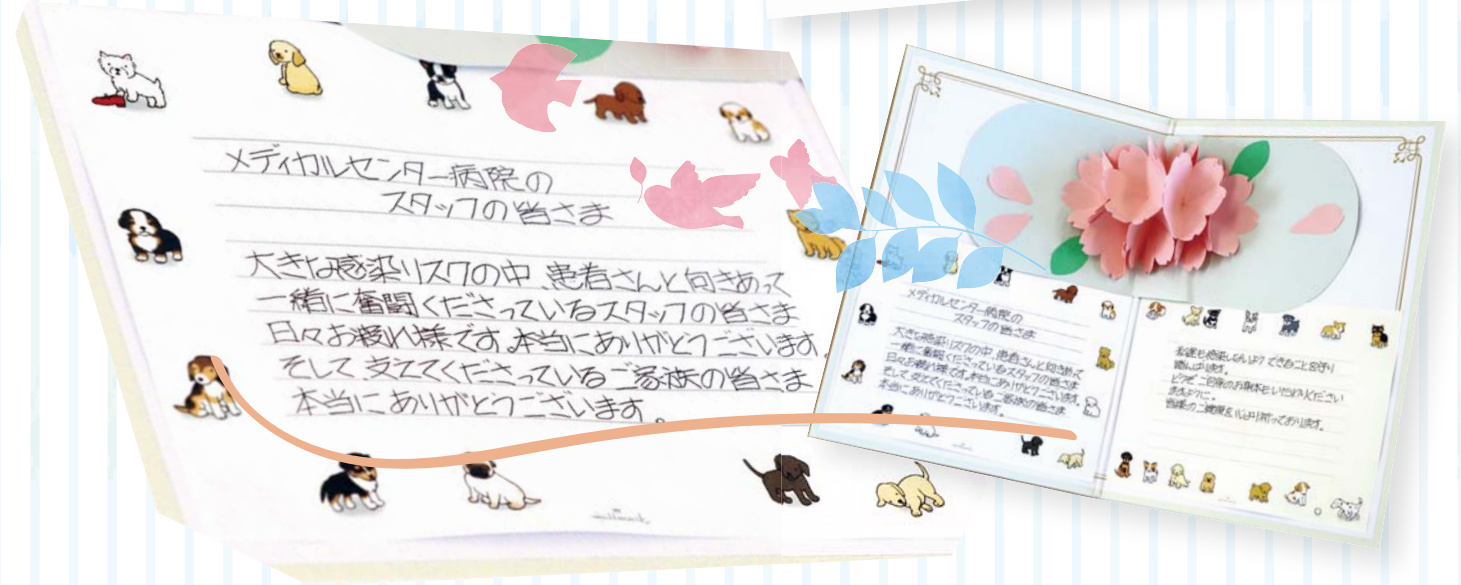 メディカルセンター病院の
スタッフの皆さま
大きな感染リスクの中、患者さんと向きあって
一緒に奮闘くださっているスタッフの皆さま
日々お疲れ様です。本当にありがとうございます。
そして、支えてくださっているご家族の皆さま
本当にありがとうございます。
メディカルセンター病院の
スタッフの皆さま
大きな感染リスクの中、患者さんと向きあって
一緒に奮闘くださっているスタッフの皆さま
日々お疲れ様です。本当にありがとうございます。
そして、支えてくださっているご家族の皆さま
本当にありがとうございます。
私達も感染しないよう できることを守り
頑張ります。
どうぞ ご自身のお身体をいたわりください
ますように。
皆様のご健康を心より祈っております。